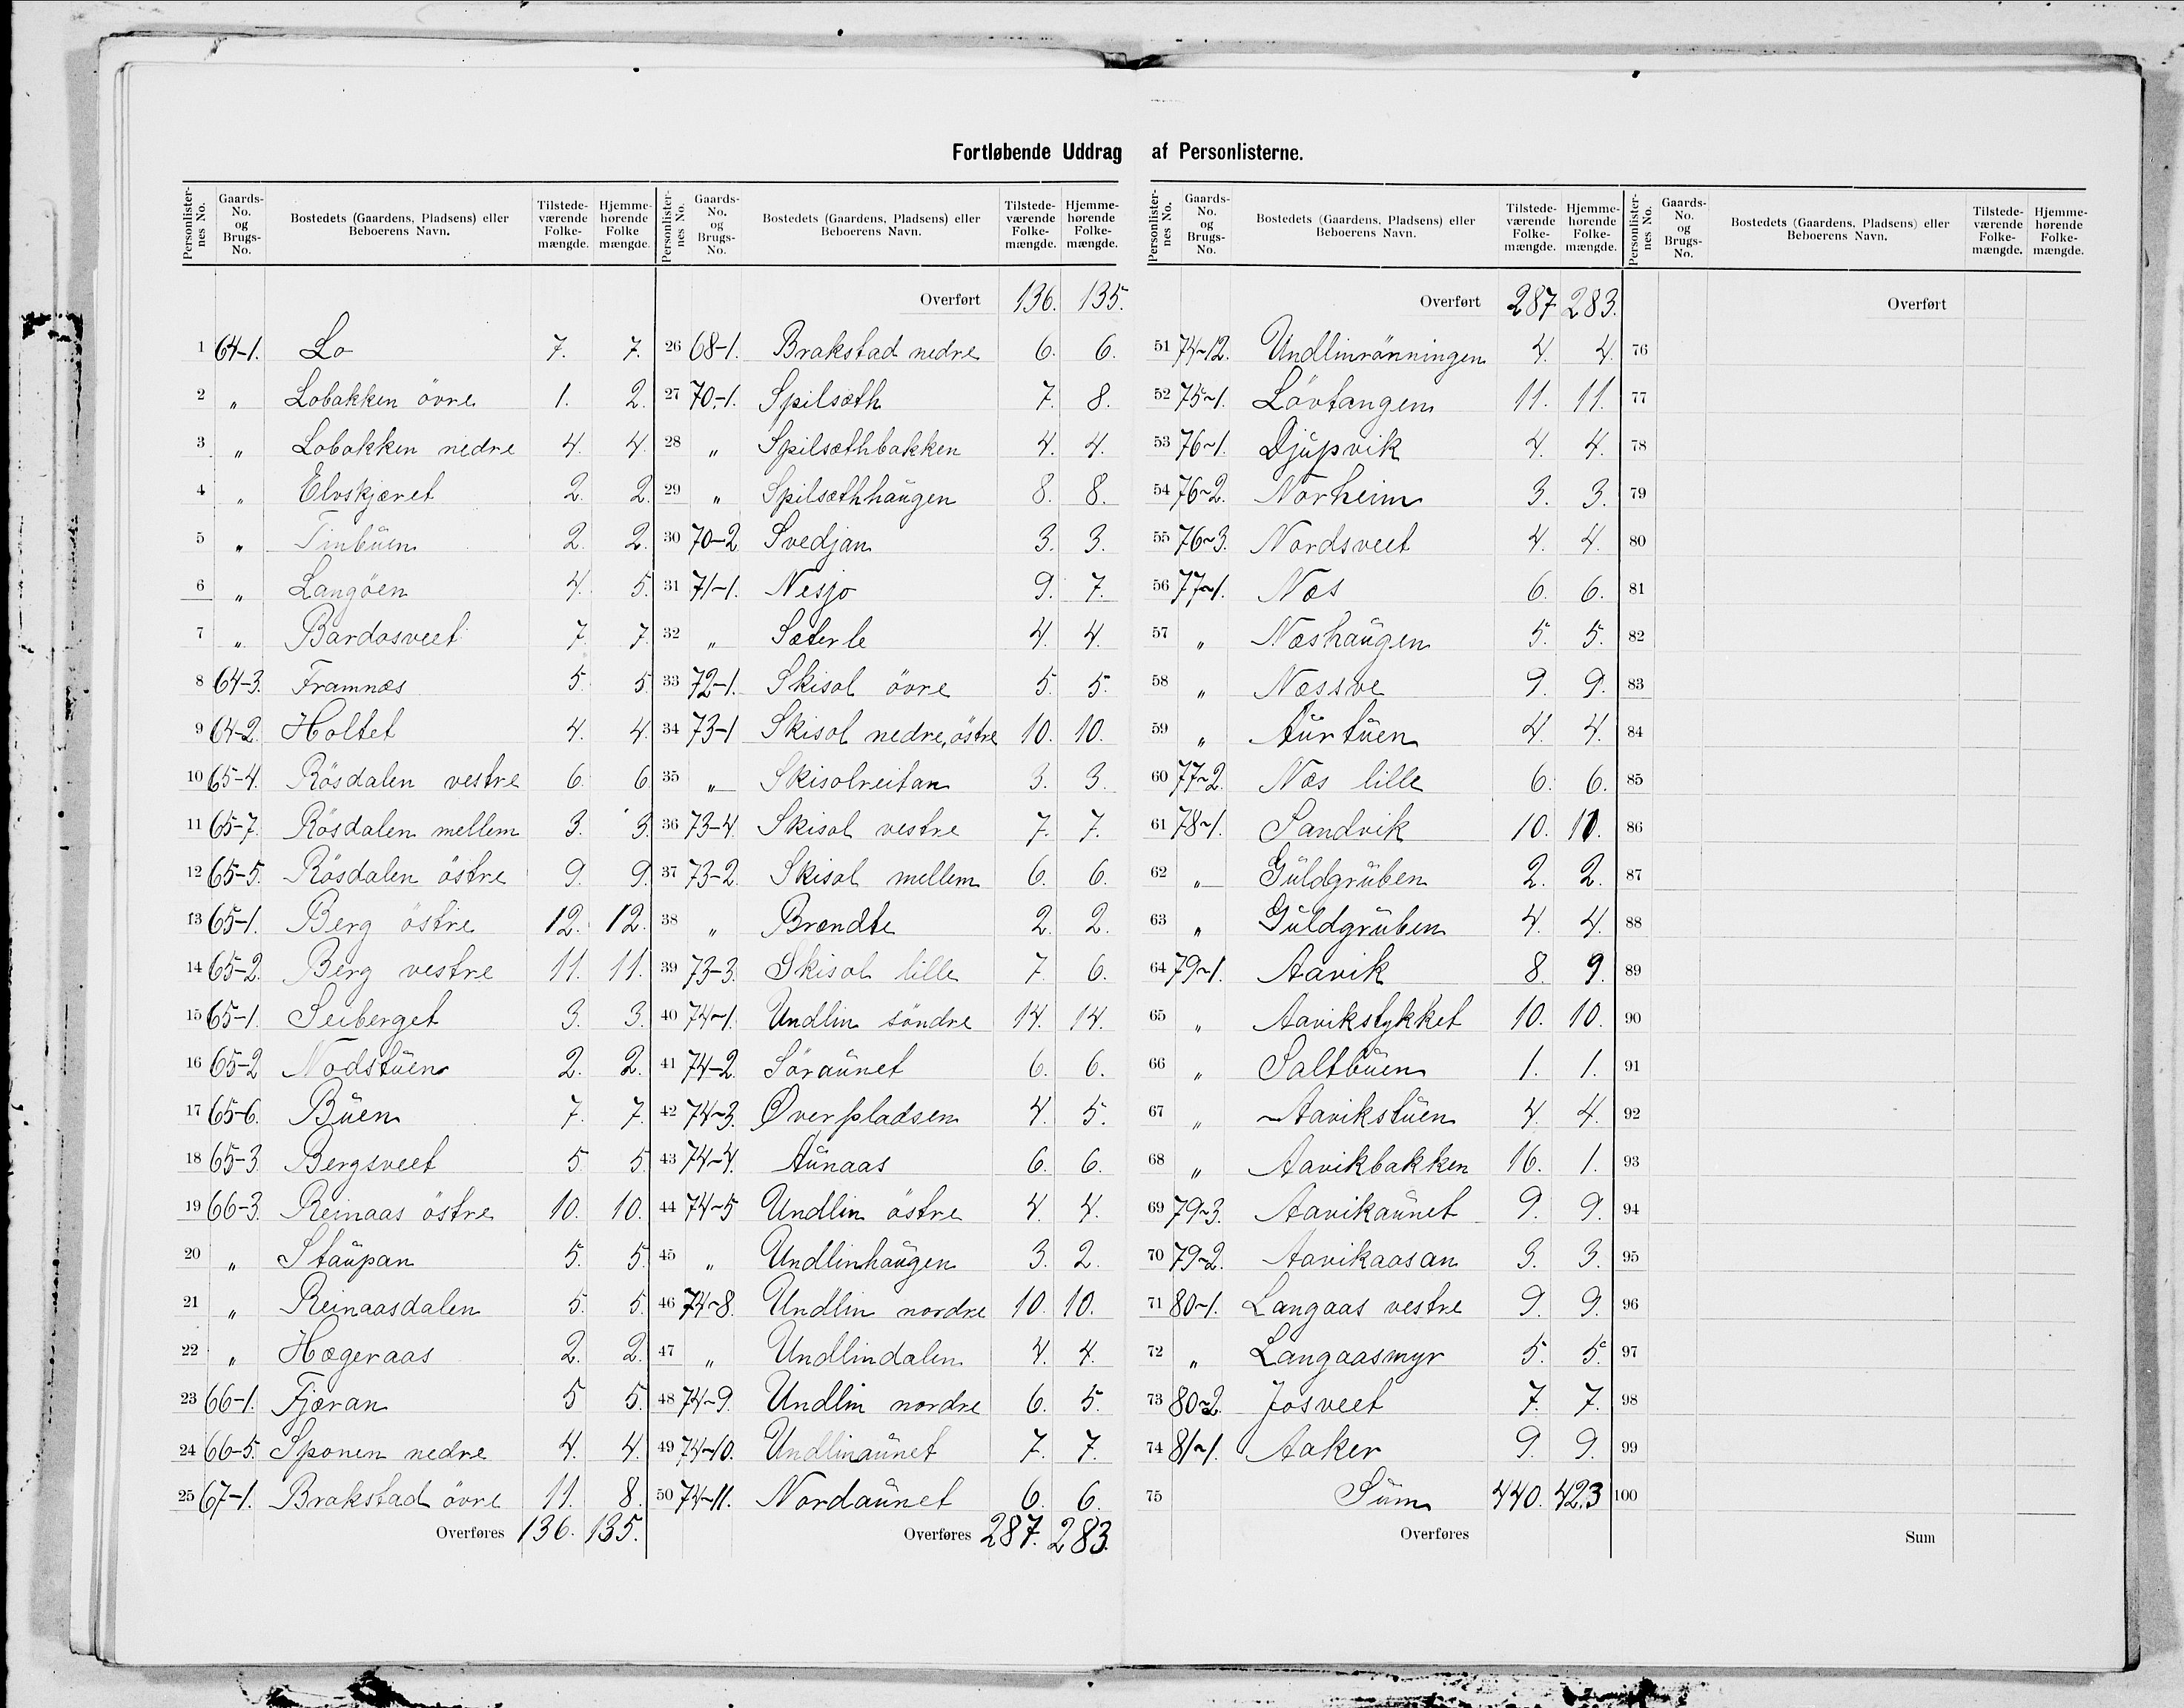 Fortløbende Uddrag af Personlisterne.
Personlisternes No. Gaards-No. og Brugs-No. Bostedets (Gaardens, Pladsens) eller Beboerens Navn. Tilstedeværende Folkemængde. Hjemmehørende Folke mængde.
1 64-1. Lo 7. 7.
2 „ Lobakken övre 1. 2.
3 „ Lobakken nedre 4. 4.
4 „ Elvskjæret 2. 2.
5 „ Tinbŭen 2. 2.
6 „ Langöen 4. 5.
7 „ Bardosveet 7. 7.
8 64-3. Framnæs 5. 5.
9 64-2. Holtet 4. 4.
10 65-4. Rösdalen vestre 6. 6.
11 65-7. Rösdalen mellem 3. 3.
12 65-5. Rösdalen östre 9. 9.
13 65-1. Berg östre 12. 12.
14 65-2. Berg vestre 11. 11.
15 65-1. Seiberget 3. 3.
16 65-2 Nodstŭen 2. 2.
17 65-6. Bŭen 7. 7.
18 65-3. Bergsveet 5 5.
19 66-3. Reinaas östre 10. 10.
20 „ Staŭpan 5. 5.
21 „ Reinaasdalen 5. 5.
22 „ Hægeraas 2. 2.
23 66-1. Fjæran 5 5.
24 66-5. Sponen nedre 4. 4.
25 67-1. Brakstad övre 11. 8.
Overføres 136. 135.
Personlisternes No. Gaards-No. og Brugs-No. Bostedets (Gaardens, Pladsens) eller Beboerens Navn. Tilstedeværende Folkemængde. Hjemmehørende Folkemængde.
Overført 136. 135.
26 68-1. Brakstad nedre 6. 6.
27 70-1. Spilsæth 7. 8.
28 „ Spilsæthbakken 4. 4.
29 „ Spilsæthhaŭgen 8. 8.
30 70-2 Svedjan 3. 3.
31 71-1. Nesjo 9. 7.
32 „ Sæterle 4. 4.
33 72-1. Skisol övre 5. 5.
34 73-1 Skisol nedre, östre 10. 10.
35 „ Skisolreitan 3. 3.
36 73-4. Skisol vestre 7. 7.
37 73-2. Skisol mellem 6. 6.
38 „ Brændte 2. 2.
39 73-3. Skisol lille 7. 6.
40 74-1. Undlin söndre 14. 14.
41 74-2. Söraŭnet 6. 6.
42 74-3. Øverpladsen 4. 5.
43 74-4. Aŭnaas 6. 6.
44 74-5 Undlin östre 4. 4.
45 „ Undlinhaŭgen 3. 2.
46 74-8. Undlin nordre 10. 10.
47 „ Undlindalen 4. 4.
48 74-9. Undlin nordre 6. 5.
49 74-10. Undlinaŭnet 7. 7.
50 74-11. Nordaŭnet 6. 6.
Overføres 287. 283.
Personlisternes No. Gaards-No. og Brugs-No. Bostedets (Gaardens, Pladsens) eller Beboerens Navn. Tilstedeværende Folkemængde. Hjemmehørende Folkemængde.
Overført 287 283.
51 74-12. Undlinrönningen 4. 4.
52 75-1. Lövtangen 11. 11.
53 76-1. Djŭpvik 4. 4.
54 76-2. Norheim 3. 3.
55 76-3. Nordsveet 4. 4.
56 77-1. Næs 6. 6.
57 „ Næshaŭgen 5. 5.
58 „ Næssve 9. 9.
59 „ Aŭrtŭen 4. 4.
60 77-2. Næs lille 6. 6.
61 78-1. Sandvik 10. 10.
62 „ Gŭldgrŭben 2. 2.
63 „ Gŭldgrŭben 4. 4.
64 79-1. Aavik 8. 9.
65 „ Aavikstykket 10. 10.
66 „ Saltbŭen 1. 1.
67 „ Aavikstŭen 4. 4.
68 „ Aavikbakken 16. 1.
69 79-3. Aavikaŭnet 9. 9.
70 79-2. Aavikaasan 3. 3.
71 80-1. Langaas vestre 9. 9.
72 „ Langaasmyr 5. 5.
73 80-2. Josveet 7. 7.
74 81-1. Aaker 9. 9.
75 Sŭm 440. 423
Overføres
Personlisternes No. Gaards-No. og Brugs-No. Bostedets (Gaardens, Pladsens) eller Beboerens Navn. Tilstedeværende Folkemængde. Hjemmehørende Folkemængde.
Overført
76
77
78
79
80
81
82
83
84
85
86
87
88
89
90
91
92
93
94
95
96
97
98
99
100
Sum